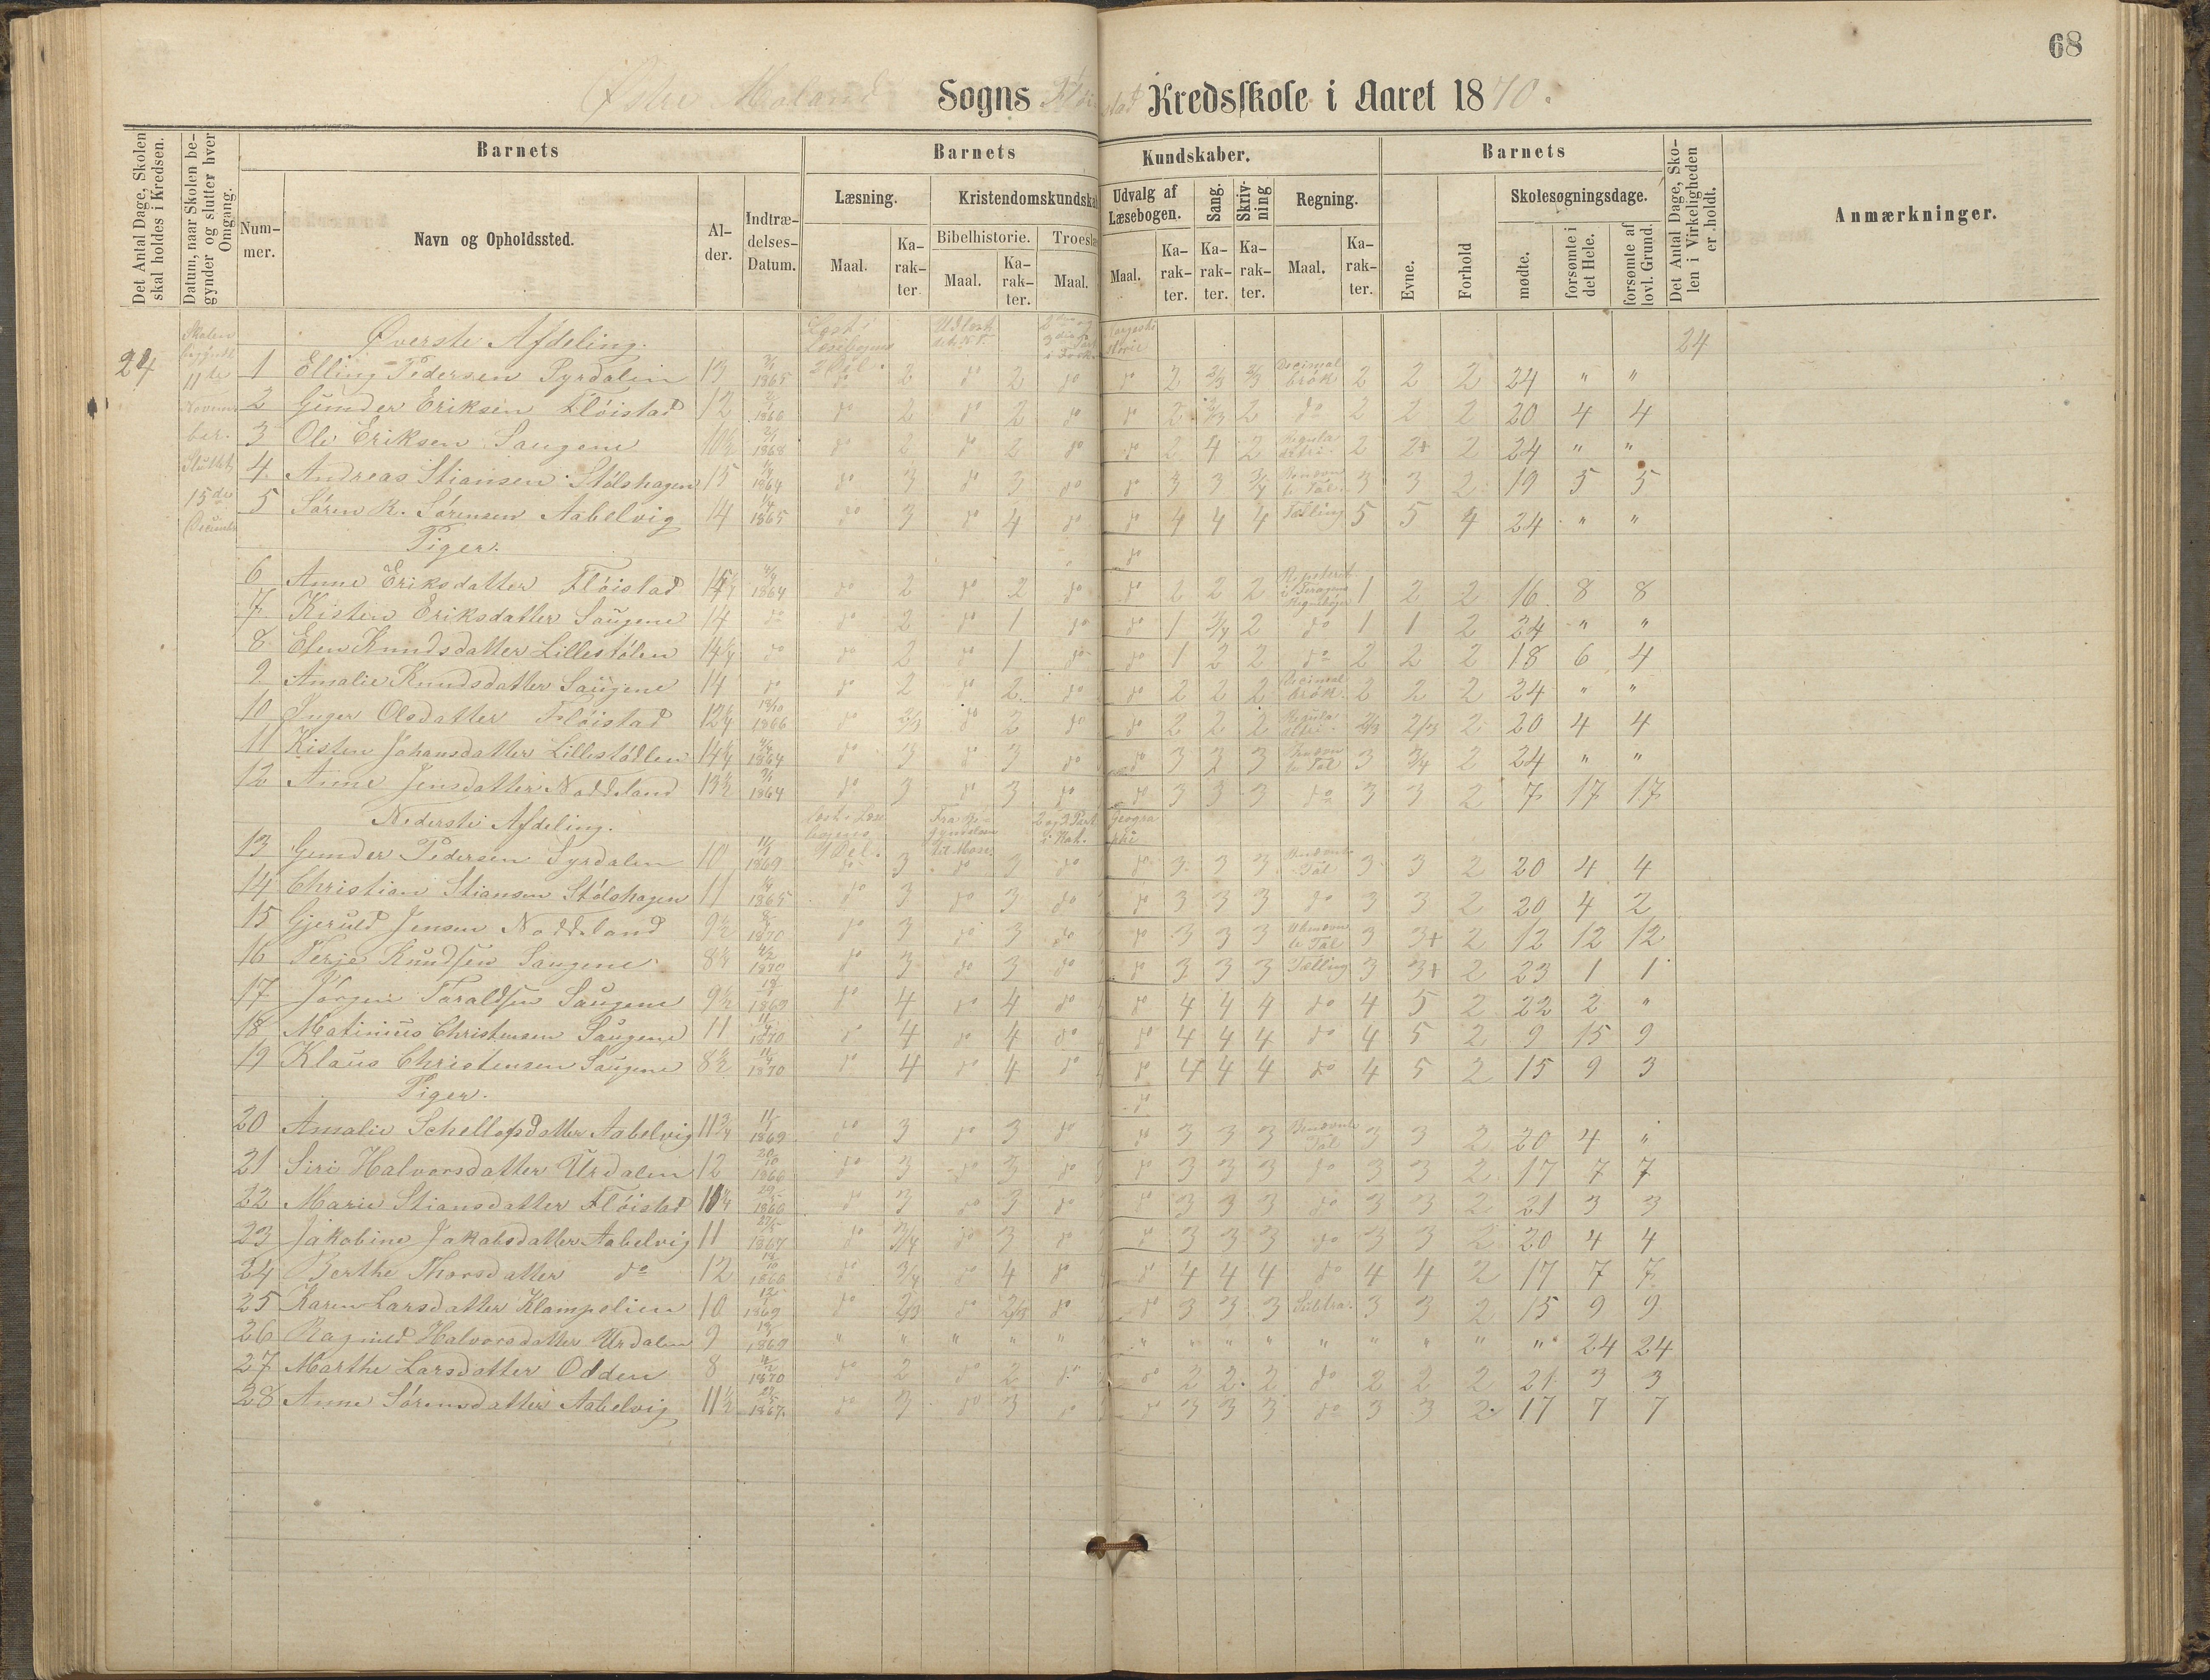 68
Østre Moland Sogns Fløistad Kredsskole i Aaret 1870.
Det Antal Dage, Skolen skal holdes i Kredsen.
Datum, naar Skolen begynder og slutter hver Omgang.
Barnets
Nummer.
Navn og Opholdssted.
Alder.
Indtrædelses-Datum.
Barnets Kundskaber.
Læsning.
Maal.
Karakter
Kristendomskundskab
Bibelhistorie.
Maal.
Karakter.
Troeslæ
Maal.
Udvalg af Læsebogen.
Maal.
Karakter.
Sang.
Karakter.
Skrivning
Karakter.
Regning.
Maal.
Karakter.
Barnets
Evne.
Forhold
Skolesøgningsdage.
mødte.
forsømte i det Hele.
forsømte af lovl. Grund.
Det Antal Dage, Skolen i Virkeligheden er holdt.
Anmærkninger.
Skolen begyndt 11te November. Sluttet 15de December
Øverste Afdeling. 24
24 1 Elling Pedersen Syrdalen 13 1865 do 2 do 2 do do 2 2/3 2/3 Decimalbrøk 2 2 2 24 " "
2 Gunder Eriksen Fløistad 12 do 2 do 2 do do 2 2 do 2 2 2 20 4 4
3 Ole Eriksen Saugene 10½ 1868 do 2 do 2 do do 2 4 2 2 2+ 2 24 " "
4 Andreas Stiansen Stølshagen 15 1864 do 3 do 3 do do 3 3 3/4 3 3 2 19 5 5
5 Søren R. Sørensen Aabelvig 14 1865 do 3 do 4 do do 4 4 4 Tælling 5 5 4 24 " "
Piger. do
6 Anne Eriksdatter Fløistad 1864 do 2 do 2 do do 2 2 2 1 2 2 16 8 8
7 Kisten Eriksdatter Saugene 14 do do 2 do 1 do do 1 3/4 2 do 1 1 2 24 " "
8 Elen Knudsdatter Lillestølen 14¼ do do 2 do 1 do do 1 2 2 do 2 2 2 18 6 4
9 Amalie Knudsdatter Saugene 14 do do 2 do 2 do do 2 2 2 Decimalbrøk 2 2 2 24 " "
10 Inger Olsdatter Fløistad 12¼ 1866 do 2/3 do 2 do do 2 2 2 2/3 2/3 2 20 4 4
11 Kisten Johansdatter Lillestødlen 14¼ 1864 do 3 do 3 do do 3 3 3 3 3/4 2 24 " "
12 Anne Jensdatter Noddeland 13½ 1864 do 3 do 3 do do 3 3 3 do 3 3 2 7 17 17
Nederste Afdeling. Geographi
13 Gunder Pedersen Syrdalen 10 1869 do 3 do 3 do do 3 3 3 3 3 2 20 4 4
14 Christian Stiansen Stølshagen 11 1865 do 3 do 3 do do 3 3 3 do 3 3 2 20 4 2
15 Gjeruld Jensen Noddeland 9½ 1870 do 3 do 3 do do 3 3 3 3 3+ 2 12 12 12
16 Terje Knudsen Saugene 1870 do 3 do 3 do do 3 3 3 Tælling 3 3+ 2 23 1 1
17 Jørgen Taraldsen Saugene 9½ 1869 do 4 do 4 do do 4 4 4 do 4 5 2 22 2 "
18 Matinius Christensen Saugene 11 1870 do 4 do 4 do do 4 4 4 do 4 5 2 9 15 9
19 Klaus Christensen Saugene 8½ 1870 do 4 do 4 do do 4 4 4 do 4 5 2 15 9 3
Piger. do
20 Amalie Schellefsdatter Aabelvig 11¾ 1869 do 3 do 3 do do 3 3 3 3 3 2 20 4 "
21 Siri Halvorsdatter Urdalen 12 do 3 do 3 do do 3 3 3 do 3 3 2 17 7 7
22 Marie Stiansdatter Fløistad do 3 do 3 do do 3 3 3 do 3 3 2 21 3 3
23 Jakobine Jakobsdatter Aabelvig 11 1867 do 3/4 do 3 do do 3 3 3 do 3 3 2 20 4 4
24 Berthe Thorsdatter do 12 do 3/4 do 4 do do 4 4 4 do 4 4 2 17 7 7
25 Karen Larsdatter Klampelien 10 1869 do 2/3 do 2/3 do do 3 3 3 Subtra. 3 3 2 15 9 9
26 Ragnild Halvorsdatter Urdalen 9 1869 " " " " " " " " " " " " " " 24 24
27 Marthe Larsdatter Odden 8 1870 do 2 do 2 do do 2 2 2 do 2 2 2 21 3 3
28 Anne Sørensdatter Aabelvig 11½ 1867 do 3 do 3 do do 3 3 3 do 3 3 2 17 7 7